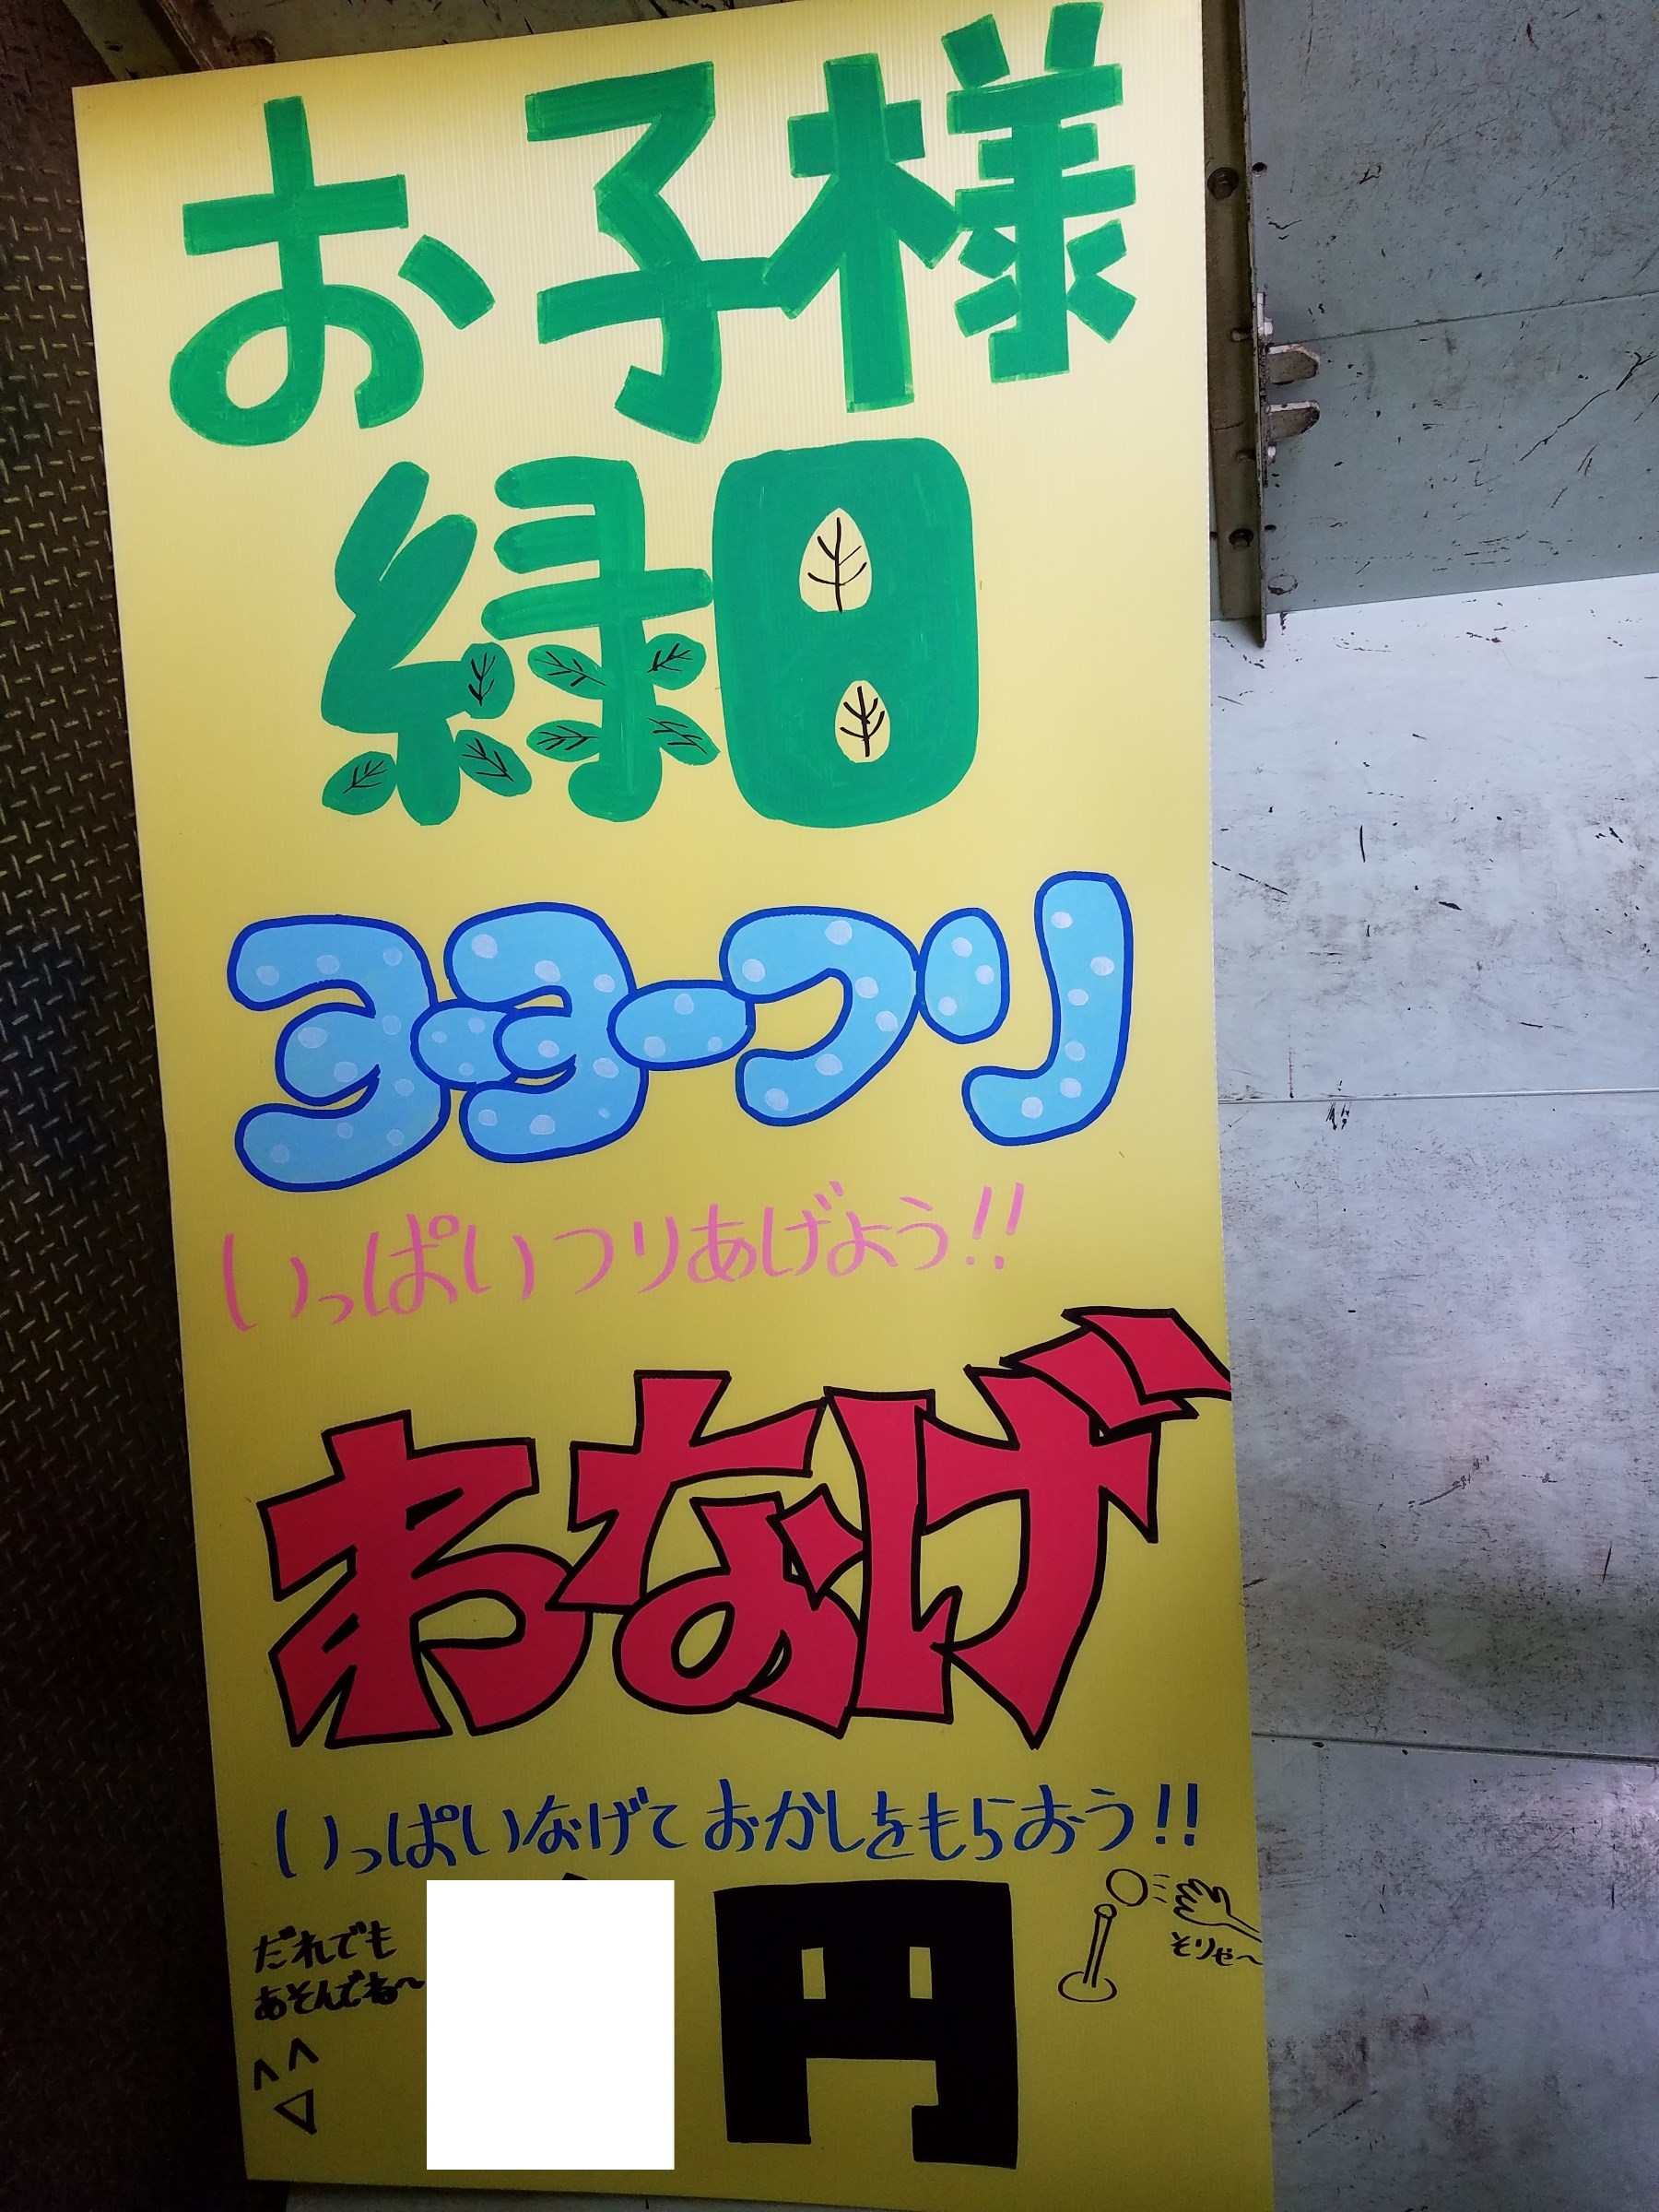 お子様
緑日
ヨーヨーつり
いっぱいつりあげよう!!
わなげ
いっぱいなげておかしをもらおう!!
だれでも
あそんでね〜
円
そりゃ〜